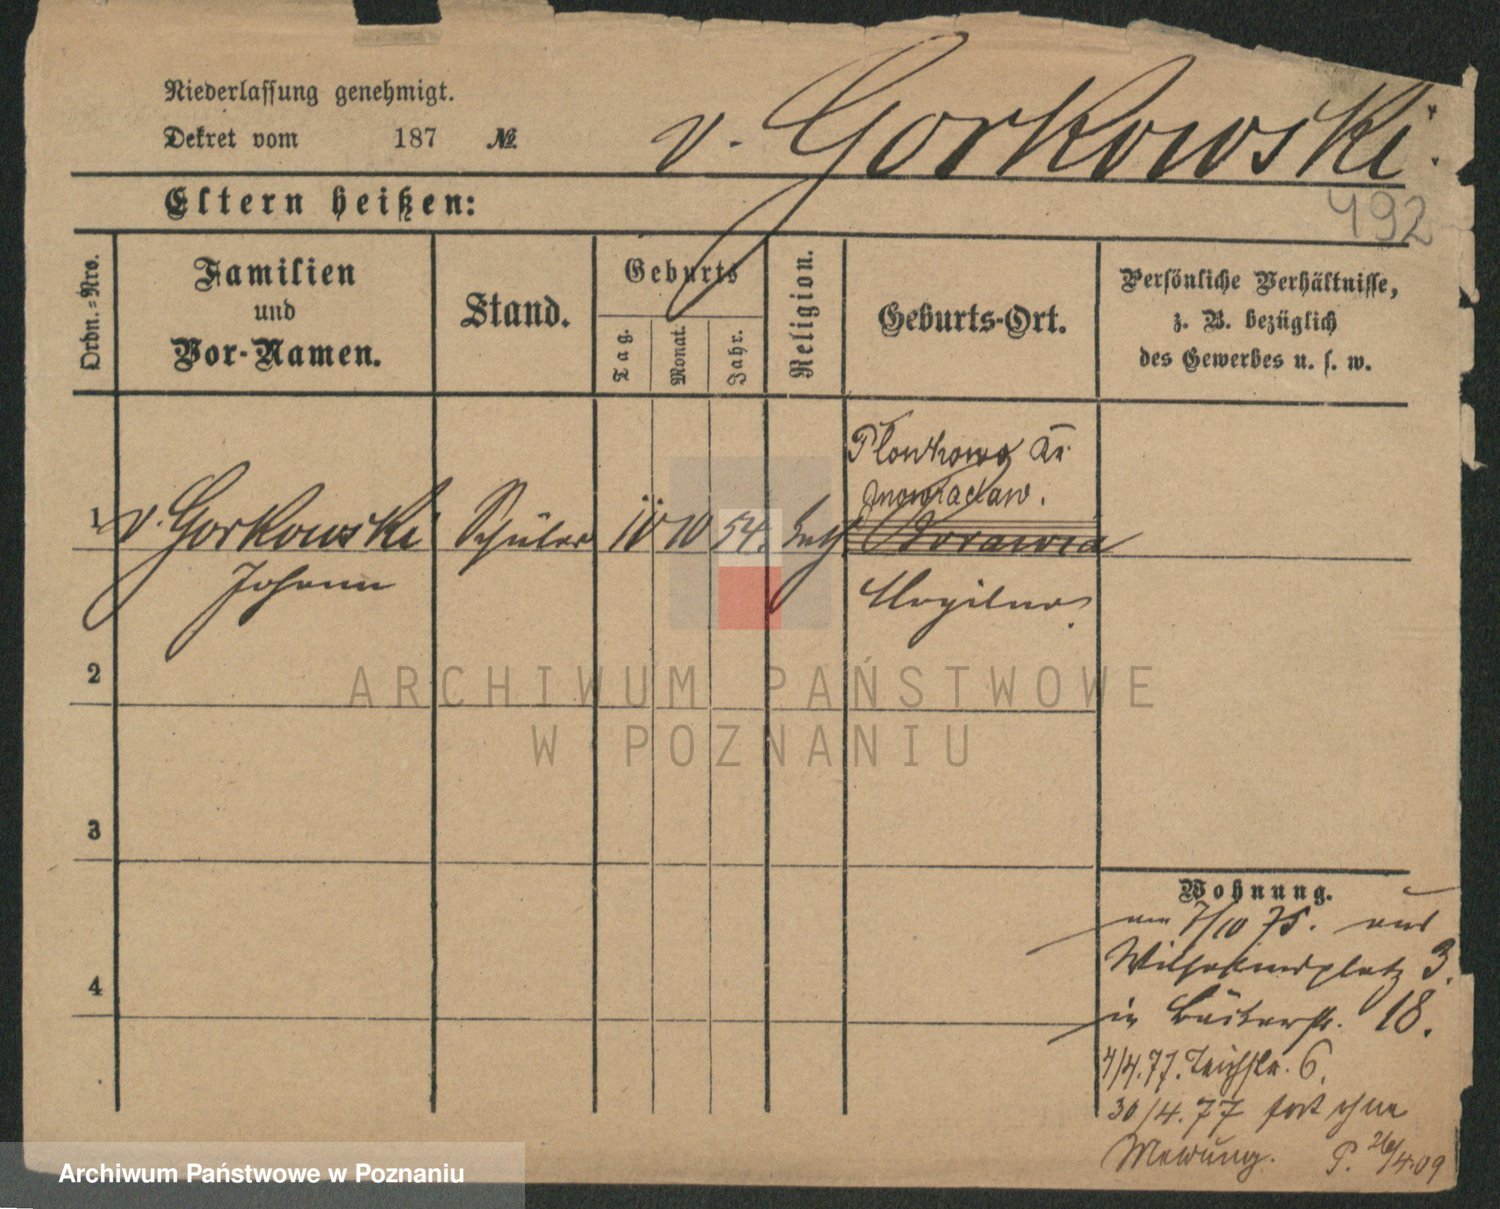 Niederlassung genehmigt.
Dekret vom 187 №
v. Gorkowski.
492
Eltern heißen:
Ordn.-Nro.
Familien
und
Vor-Namen.
Stand.
Geburts
Tag.
Monat.
Jahr.
Religion.
Geburts-Ort.
Persönliche Verhältnisse,
z. B. bezüglich
des Gewerbes u. s. w.
Plonkowo Kr.
Inowraclaw.
1 v. Gorkowski Schüler 10 10 54.
Johann Mogilno.
2
3
4
ARCHIWUM PAŃSTWOWE
W POZNANIU
Wohnung.
7/10 75. aus
Wilhelmsplatz 3.
in Bäckerstr. 18.
4/4.77. Teichstr. 6.
30/4.77 fort ohne
Meldung. P. 26/4.09
Archiwum Państwowe w Poznaniu